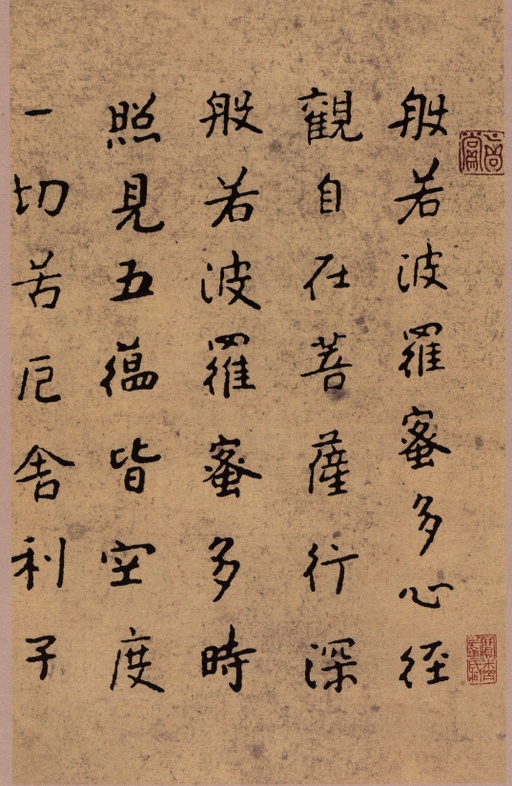 般若波羅蜜多心経
觀自在菩薩行深
般若波羅蜜多時
照見五蘊皆空度
一切苦厄舍利子